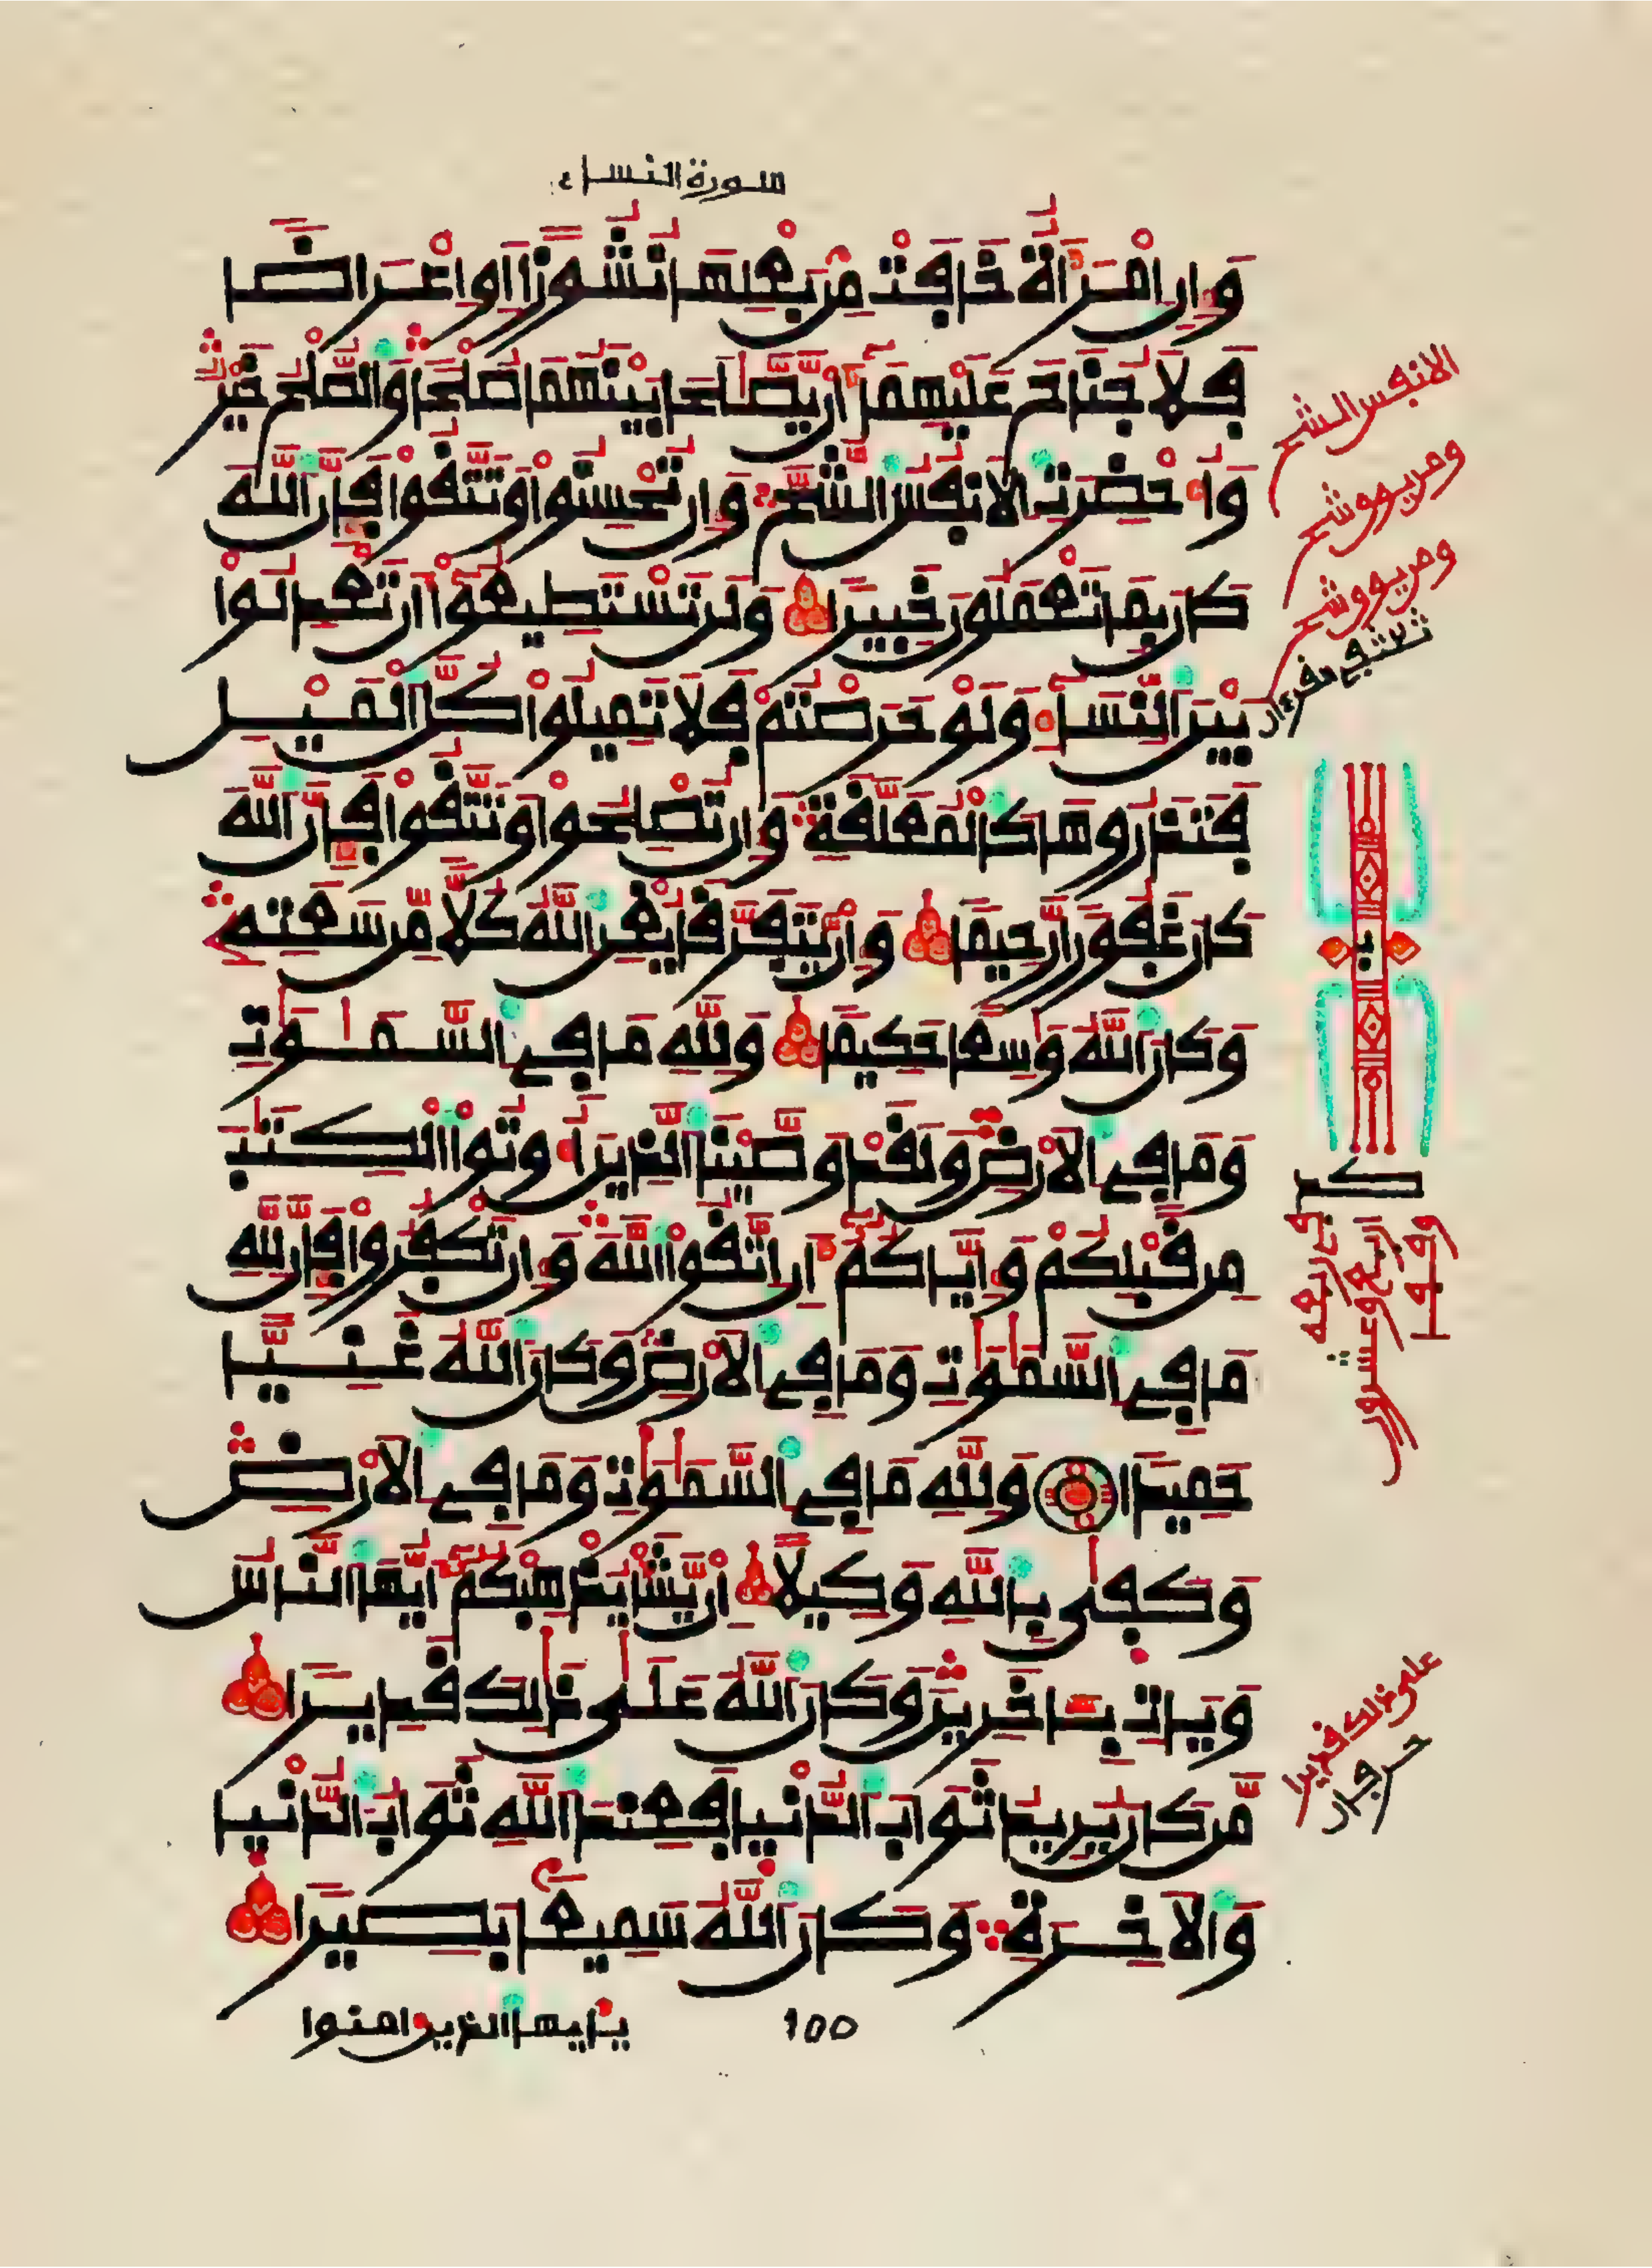 سورة النساء
وَإِنِ امْرَأَةٌ خَافَتْ مِنۢ بَعْلِهَا نُشُوزًا اَوِ اعْرَاضًا
فَلَا جُنَاحَ عَلَيْهِمَآ أَنْ يَّصَّٰلَحَا بَيْنَهُمَا صُلْحًا وَالصُّلْحُ خَيْرٌ
وَأُحْضِرَتِ الَانفُسُ الشُّحَّ وَإِن تُحْسِنُوا وَتَتَّقُوا فَإِنَّ اللَّهَ
كَانَ بِمَا تَعْمَلُونَ خَبِيرًا وَلَن تَسْتَطِيعُوٓا أَن تَعْدِلُوا
بَيْنَ النِّسَآءِ وَلَوْ حَرَصْتُمْ فَلَا تَمِيلُوا كُلَّ الْمَيْلِ
فَتَذَرُوهَا كَالْمُعَلَّقَةِ وَإِن تُصْلِحُوا وَتَتَّقُوا فَإِنَّ اللَّهَ
كَانَ غَفُورًا رَّحِيمًا وَإِنْ يَّتَفَرَّقَا يُغْنِ اللَّهُ كُلًّا مِّن سَعَتِهِ
وَكَانَ اللَّهُ وَٰسِعًا حَكِيمًا وَلِلَّهِ مَا فِي السَّمَٰوَٰتِ
وَمَا فِي الَارْضِ وَلَقَدْ وَصَّيْنَا الَّذِينَ أُوتُوا الْكِتَٰبَ
مِن قَبْلِكُمْ وَإِيَّاكُمُۥٓ أَنِ اتَّقُوا اللَّهَ وَإِن تَكْفُرُوا فَإِنَّ لِلَّهِ
مَا فِي السَّمَٰوَٰتِ وَمَا فِي الَارْضِ وَكَانَ اللَّهُ غَنِيًّا
حَمِيدًا وَلِلَّهِ مَا فِي السَّمَٰوَٰتِ وَمَا فِي الَارْضِ
وَكَفَىٰ بِاللَّهِ وَكِيلًا إِنْ يَّشَأْ يُذْهِبْكُمُۥٓ أَيُّهَا النَّاسُ
وَيَاتِ بِـَٔاخَرِينَ وَكَانَ اللَّهُ عَلَىٰ ذَٰلِكَ قَدِيرًا
مَّن كَانَ يُرِيدُ ثَوَابَ الدُّنْيَا فَعِندَ اللَّهِ ثَوَابُ الدُّنْيَا
وَالَاخِرَةِ وَكَانَ اللَّهُ سَمِيعًۢا بَصِيرًا
100
يأيها الذين ءامنوا
الانفس الشح
ومن يوق شح
ومن يوق شح
على ذلك قديرا